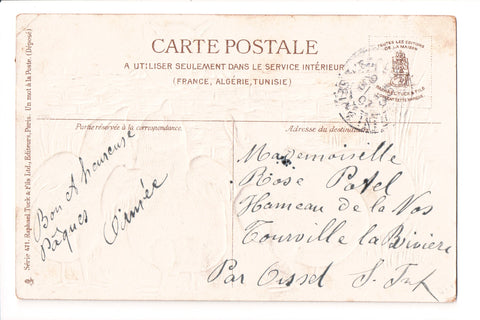 CARTE POSTALE
A UTILISER SEULEMENT DANS LE SERVICE INTÉRIEUR
(FRANCE, ALGÉRIE, TUNISIE)
TOUTES LES EDITIONS
DE LA MAISON
RAPHAEL TUCK & FILS
Partie réservée à la correspondance.
Adresse du destinataire
Bon et heureuse
Pâques
Aimée
Mademoiselle
Rose Patel
Hameau de la Vos
Tourville la Rivière
Par Oissel S. Inf
Série 411. Raphael Tuck & Fils Ltd., Editeurs, Paris. Un mot à la Poste. (Déposé)